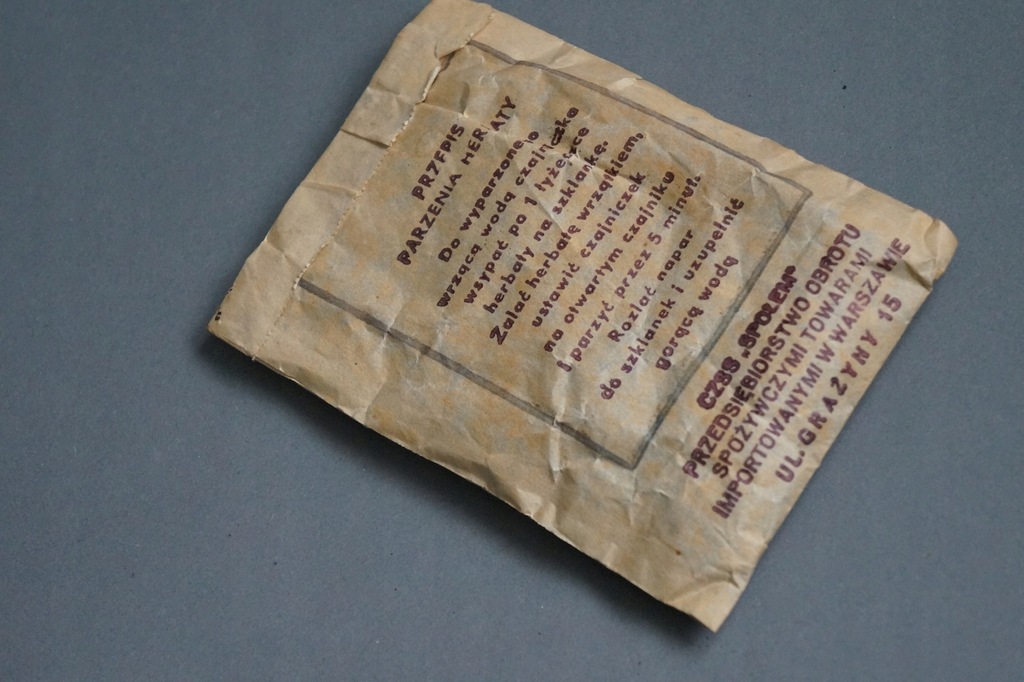 PRZEPIS
PARZENIA HERBATY
Do wyparzonego
wrzącą wodą czajniczka
wsypać po 1 łyżeczce
herbaty na szklankę.
Zalać herbatę wrzątkiem,
ustawić czajniczek
na otwartym czajniku
i parzyć przez 5 minut.
Rozlać napar
do szklanek i uzupełnić
gorącą wodą
CZSS „SPOŁEM”
PRZEDSIĘBIORSTWO OBROTU
SPOŻYWCZYMI TOWARAMI
IMPORTOWANYMI W WARSZAWIE
UL. GRAŻYNY 15